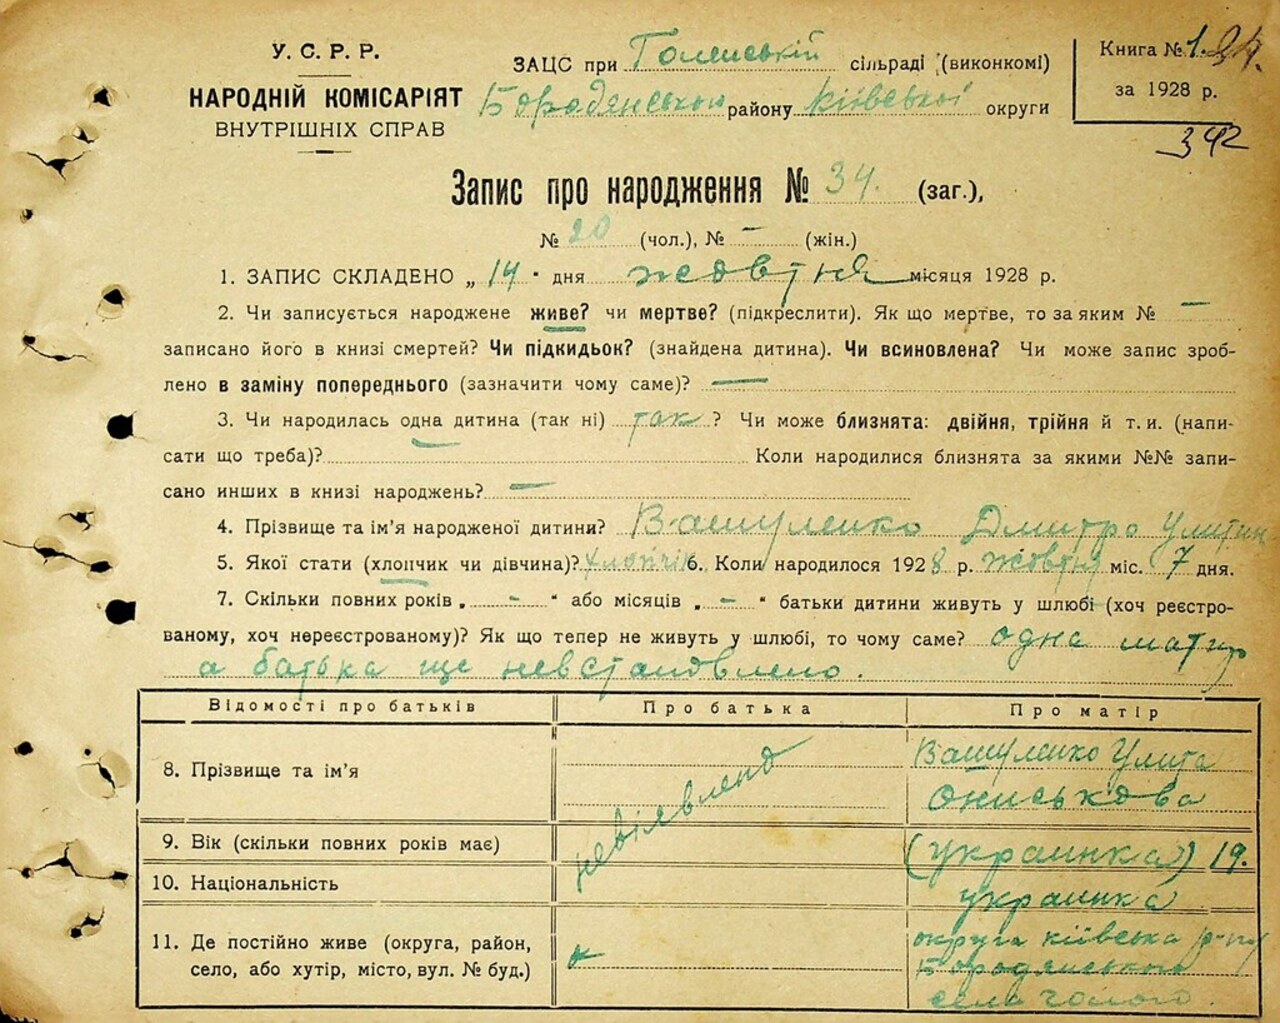 У. С. Р. Р.
НАРОДНІЙ КОМІСАРІЯТ
ВНУТРІШНІХ СПРАВ
ЗАЦС приГоленській сільраді (виконкомі)
Бородянського району Київської округи
Книга № 1.
за 1928 р.
342
Запис про народження № 34. (заг.),
№ 20 (чол.), № — (жін.)
1. ЗАПИС СКЛАДЕНО „ 14 " дня жовтня місяця 1928 р.
2. Чи записується народжене живе? чи мертве? (підкреслити). Як що мертве, то за яким № —
записано його в книзі смертей? Чи підкидьок? (знайдена дитина). Чи всиновлена? Чи може запис зроб-
лено в заміну попереднього (зазначити чому саме)? —
3. Чи народилась одна дитина (так ні) так ? Чи може близнята: двійня, трійня й т. и. (напи-
сати що треба)? Коли народилися близнята за якими №№ запи-
сано инших в книзі народжень? —
4. Прізвище та ім'я народженої дитини? Вашуленко Дмитро Улитин
5. Якої стати (хлопчик чи дівчина)? хлопчік 6. Коли народилося 1928 р. жовтня міс. 7 дня.
7. Скільки повних років „ - " або місяців „ - " батьки дитини живуть у шлюбі (хоч реєстро-
ваному, хоч нереєстрованому)? Як що тепер не живуть у шлюбі, то чому саме? одна мати
а батька ще невстановлено.
Відомості про батьків Про батька Про матір
8. Прізвище та ім'я невіявлено Вашуленко Улита
Ониськова
9. Вік (скільки повних років має) (украинка) 19.
10. Національність украинка
11. Де постійно живе (округа, район,
село, або хутір, місто, вул. № буд.)
округа київська р-ну
Бородянського
села